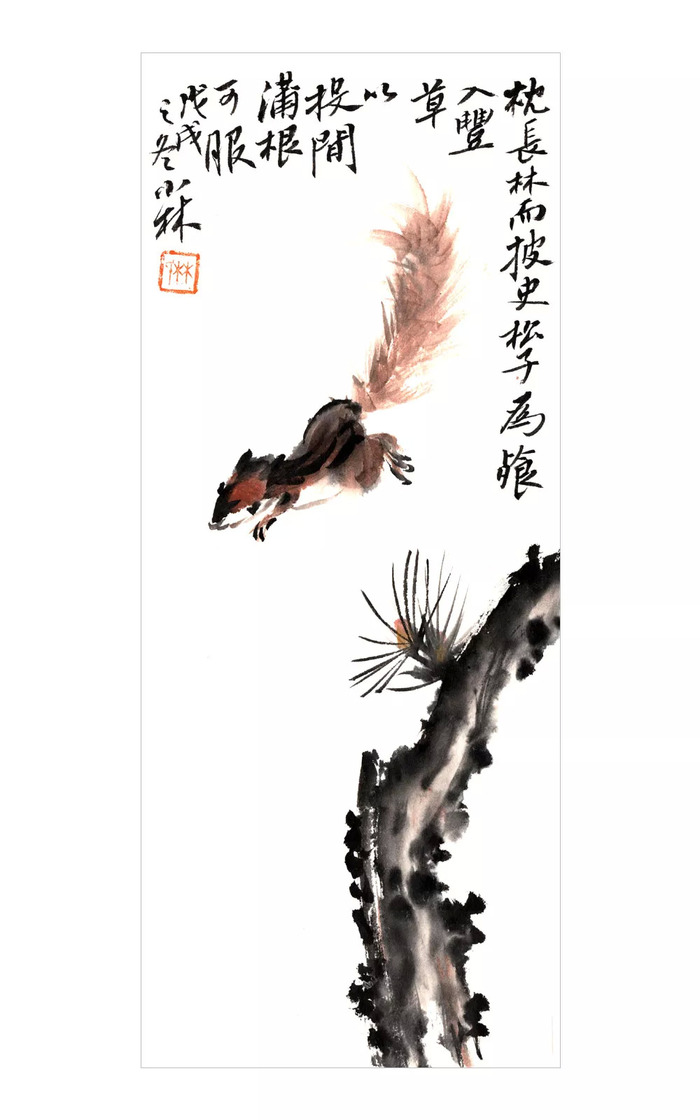 枕長林而披史松子為餐
入豐
草
以
投間
蒲根
可服
戊戌
之冬小林